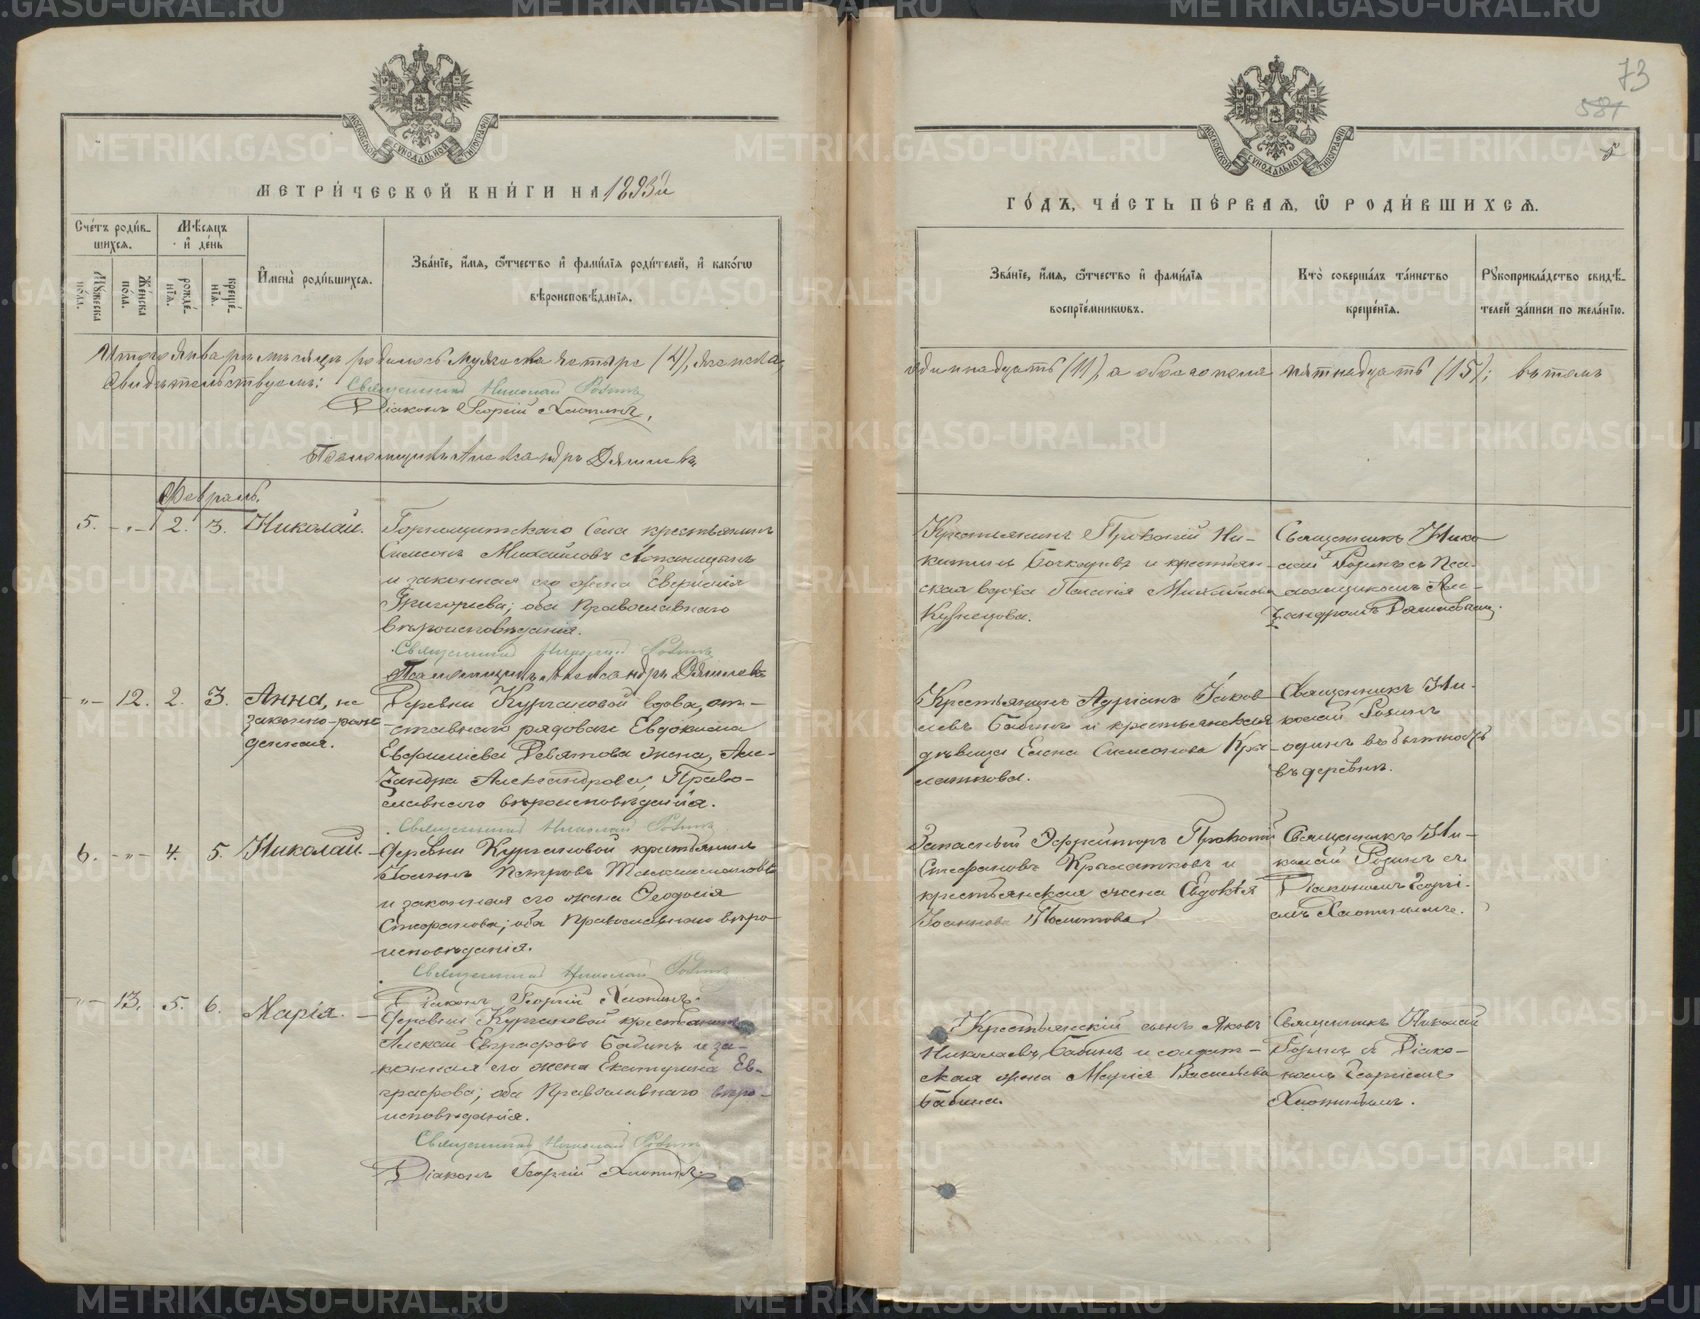 METRIKI.GASO-URAL.RU
73
581
МОСКОВСКОЙ СѴНОДАЛЬНОЙ ТИПОГРАФІИ
МЕТРИ́ЧЕСКОЙ КНИ́ГИ НА 1893й
Сче́тъ роди́в-
шихся.
Мѣ́сяцъ
и҆ де́нь
Мꙋ́жеска по́ла.
Же́нска по́ла.
рожде́-
нїя.
креще́-
нїя.
И҆мена̀ роди́вшихся.
Зва́нїе, и҆́мя, ѻ҆́тчество и҆ фами́лїя роди́телей, и҆ како́гѡ
вѣроисповѣ́данїя.
Итого въ январѣ мѣсяцѣ родилось мужеска четыре (4), женска
Свидѣтельствуемъ: Священникъ Николай Родинъ
Діаконъ Георгій Хлопинъ.
Псаломщикъ Александръ
Февраль.
5. - „ - 2. 3. Николай.
Горнощитскаго Села крестьянинъ
Симеонъ Михайловъ
и законная его жена Евгенія
Григорьева; оба Православнаго
вѣроисповѣданія.
Священникъ Николай Родинъ
Псаломщикъ Александръ
- „ - 12. 2. 3. Анна, не
законно-рож-
денная.
Деревни Кургановой вдова, от-
ставнаго рядоваго Евдокима
жена, Алек-
сандра Александрова, Право-
славнаго вѣроисповѣданія.
Священникъ Николай Родинъ
6. - „ - 4. 5. Николай.
Деревни Кургановой крестьянинъ
Іоаннъ Петровъ
и законная его жена Ѳеодосія
Стефанова; оба Православнаго вѣро-
исповѣданія.
Священникъ Николай Родинъ
Діаконъ Георгій Хлопинъ.
- „ - 13. 5. 6. Марія.
Деревни Кургановой крестьянинъ
Алексій Евграфовъ Бабинъ и за-
конная его жена Екатерина Ев-
графова; оба Православнаго вѣро-
исповѣданія.
Священникъ Николай Родинъ
Діаконъ Георгій Хлопинъ
ГО́ДЪ, ЧА́СТЬ ПЕ́РВАЯ, Ѽ РОДИ́ВШИХСЯ.
Зва́нїе, и҆́мя, ѻ҆́тчество и҆ фами́лїя
воспрїе́мникѡвъ.
Кто̀ соверша́лъ та́инство
креще́нїя.
Рꙋкоприкла́дство свидѣ́-
телей за́писи по жела́нїю.
одиннадцать (11), а обоего пола пятнадцать (15); въ томъ
Крестьянинъ Прокопій Ни-
китинъ и крестьян-
ская вдова Пелагія Михайлова
Кузнецова.
Священникъ Нико-
лай Родинъ съ Пса-
ломщикомъ Алек-
сандромъ
Крестьянинъ Адріанъ Іаков-
левъ Бабинъ и крестьянская
дѣвица Елена Симеонова Кры-
латкова.
Священникъ Ни-
колай Родинъ
одинъ въ бытность
въ деревнѣ.
Запасный Эфрейторъ Прокопій
Стефановъ Крылатковъ и
крестьянская жена Евдокія
Іоаннова
Священникъ Ни-
колай Родинъ съ
Діакономъ Георгі-
емъ Хлопинымъ.
Крестьянскій сынъ Яковъ
Николаевъ Бабинъ и солдат-
ская жена Марія Васильева
Бабина.
Священникъ Николай
Родинъ съ Діако-
номъ Георгіемъ
Хлопинымъ.